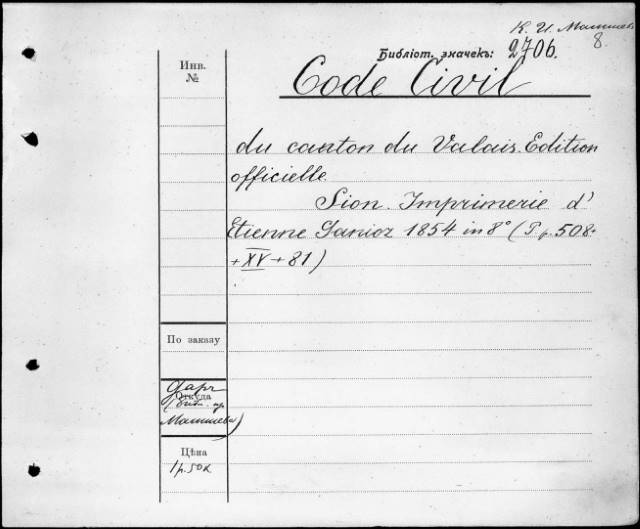 К. И. Малышев
8.
Библіот. значекъ: 2706.
Инв.
№
Code Civil
du canton du Valais. Edition
officielle.
Sion. Imprimerie d'
Etienne Ganioz 1854 in 8° (P.p. 508+
+XV+81)
По заказу
Откуда
Даръ
(биб. пр.
Малышева)
Цѣна
1 р. 50 к